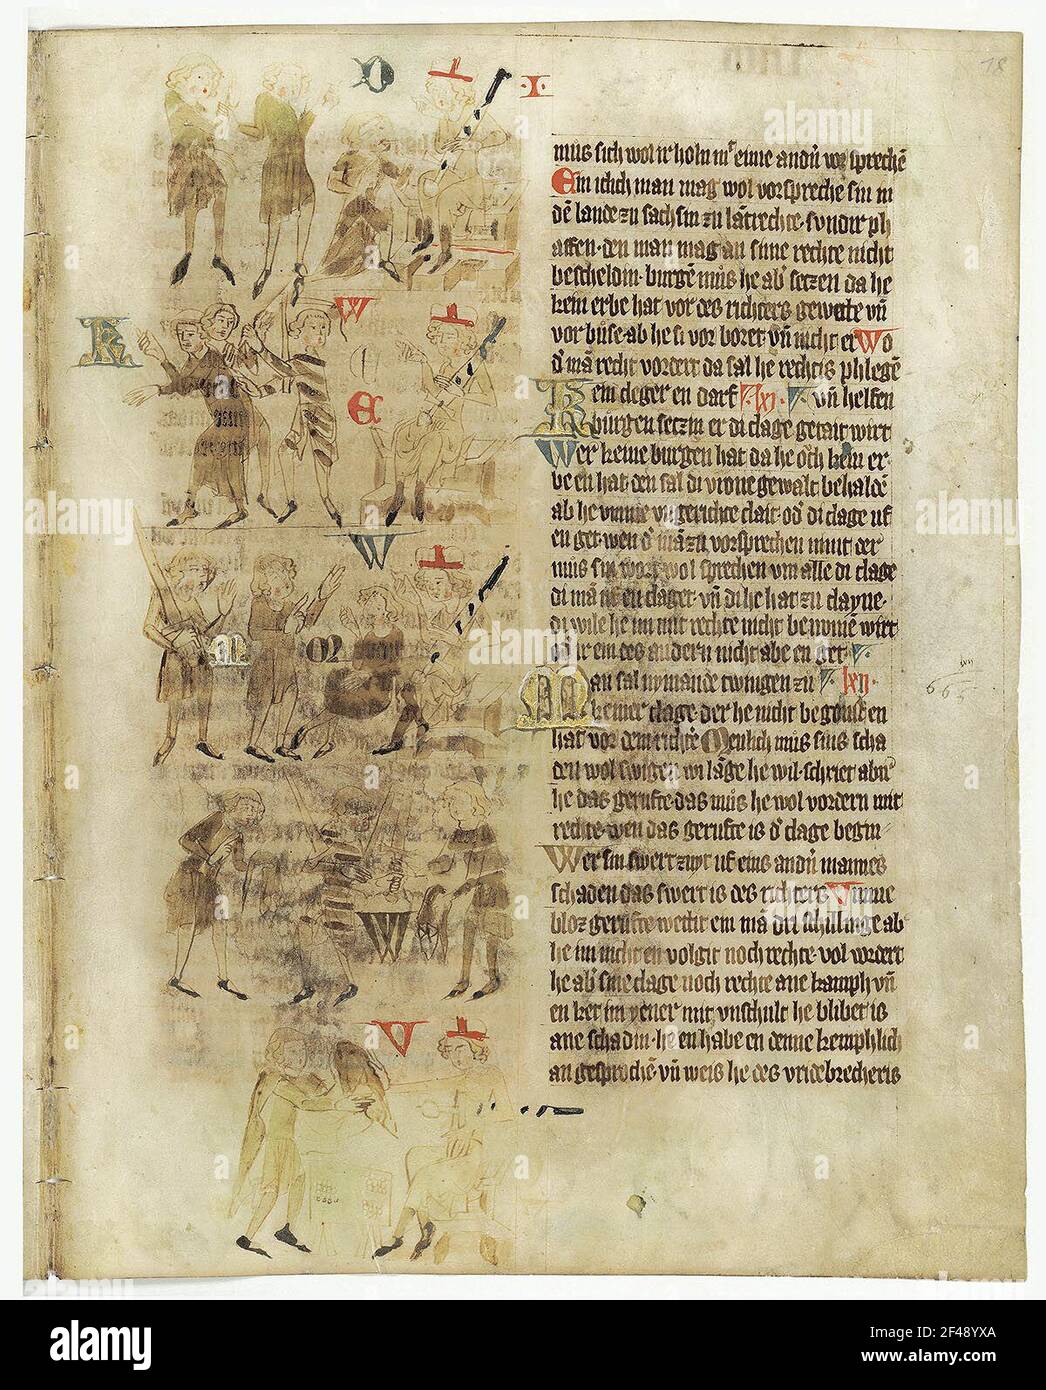 18
·I·
mus sich wol ir holn mit eime andern vorsprechē
Ein iclich man mag wol vorspreche sin in
dē lande zu sachsin zu lātrechte· sundir ph
affen· den man mag an sime rechte nicht
bescheldin· burgē mus he ab' setzen da he
kein erbe hat vor des richters gewette vn̄
vor buse· ab he si vor boret vn̄ nicht er Wo
d' mā recht vordert da sal he rechtis phlegē
Kein cleger en darf ·lxi· vn̄ helfen
burgen setzin er di clage getait wirt
Wer keine burgen hat da he och kein er·
be en hat den sal di vronegewalt behaldē
ab he umme ungerichte clait· od' di clage uf
en get· wen d' mā zu vorsprechen nimt der
mus sin wort wol sprechen um alle di clage
di mā uf en claget· vn̄ di he hat zu clayne·
di wile he im mit rechte nicht benomē wirt
od' ir ein des andern nicht abe en get
Man sal nymande twingen zu lxii·
keiner clage· der he nicht begonsten
hat vor dem richtē Menlich mus sins scha
den wol swigen wi lāge he wil· schriet abir
he das gerufte· das mus he wol vordern mit
rechte· wen das gerufte is d' clage begin
Wer sin swert zuyt uf eins andn̄ mannes
schaden das swert is des richters Umme
bloz gerufte wecht ein mā dri schillinge ab
he im nicht en volgit noch rechte· vol vordert
he ab' sine clage noch rechte ane kamph vn̄
en ket im yener mit unschult he blibet is
ane schadin· he en habe en denne kemphlich
an gesprochē vn̄ weis he des vridebrecheris
665
D
W
K
E
W
M
M
W
V
alamy
Image ID: 2F48YXA
www.alamy.com